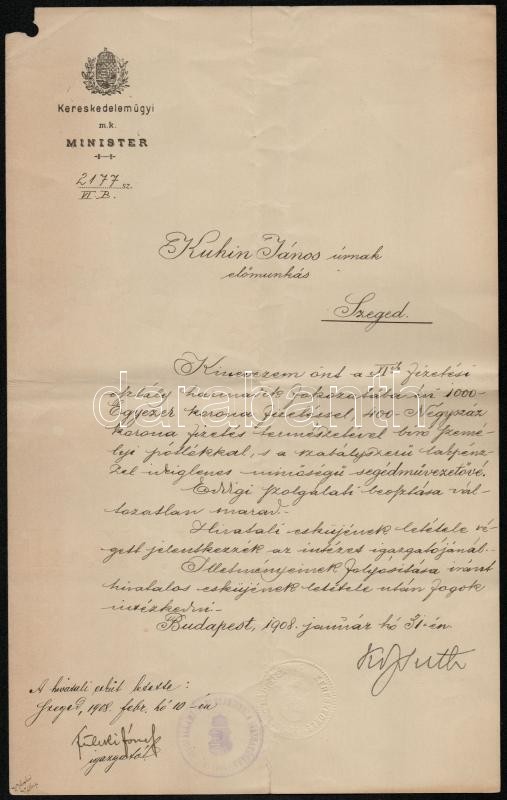 Kereskedelemügyi
m.k.
MINISTER
2177 sz.
VI. B.
Kuhin János úrnak
előmunkás
Szeged.
Kinevezem önt a fizetési
osztály harmadik fokozatába évi 1000
Egyezer korona fizetéssel 400 Négyszáz
korona fizetés természetével biró szemé-
lyi pótlékkal, s a szabályszerű lakpénz-
zel ideiglenes minőségű segédművezetővé.
Eddigi szolgálati beosztása vál-
tozatlan marad.
Hivatali esküjének letétele vé-
gett jelentkezzék az intézet igazgatójánál.
Illetményeinek folyósítása iránt
hivatalos esküjének letétele után fogok
intézkedni.
Budapest, 1908. január hó 31-én
Kossuth
A hivatali esküt letette:
Szeged, 1908. febr. hó 10-én
igazgató
darabanth